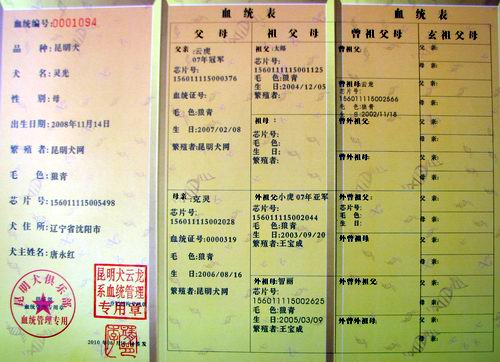 血统编号:0001094
品 种:昆明犬
犬 名:灵光
性 别:母
出生日期:2008年11月14日
繁 殖 者:昆明犬网
毛 色:狼青
芯 片 号:156011115005498
犬 住 所:辽宁省沈阳市
犬主姓名:唐永红
昆明犬俱乐部
血统管理专用
昆明犬云龙
系血统管理
专用章
血 统 表
父 母
祖 父 母
父亲:云虎
07年冠军
芯片号:
156011115000376
血统证号:
毛 色:狼青
生 日:2007/02/08
繁殖者:昆明犬网
母亲:克灵
芯片号:
156011115002028
血统证号:0000319
毛 色:狼青
生 日:2006/08/16
繁殖者:昆明犬网
祖父:大郎
芯片号:
156011115001125
毛 色:狼青
生 日:2004/12/05
繁殖者:
祖母:
芯片号:
毛 色:
生 日:
繁殖者:
外祖父:小虎 07年亚军
芯片号:
156011115002044
毛 色:狼青
生 日:2003/09/20
繁殖者:王宝威
外祖母:智丽
芯片号:
156011115002625
毛 色:狼青
生 日:2005/03/09
繁殖者:王宝威
血 统 表
曾祖父母
玄祖父母
曾祖父:
曾祖母:云龙
芯片号:
156011115002566
毛 色:狼青
生 日:2002/11/18
曾外祖父:
曾外祖母:
外曾祖父:
芯片号:
毛 色:
生 日:
外曾祖母
外曾外祖父:
外曾外祖母:
父 亲:
母 亲:
父 亲:
母 亲:
父 亲:
母 亲:
父 亲:
母 亲:
父 亲:
母 亲:
父 亲:
母 亲:
父 亲:
母 亲:
父 亲:
母 亲: